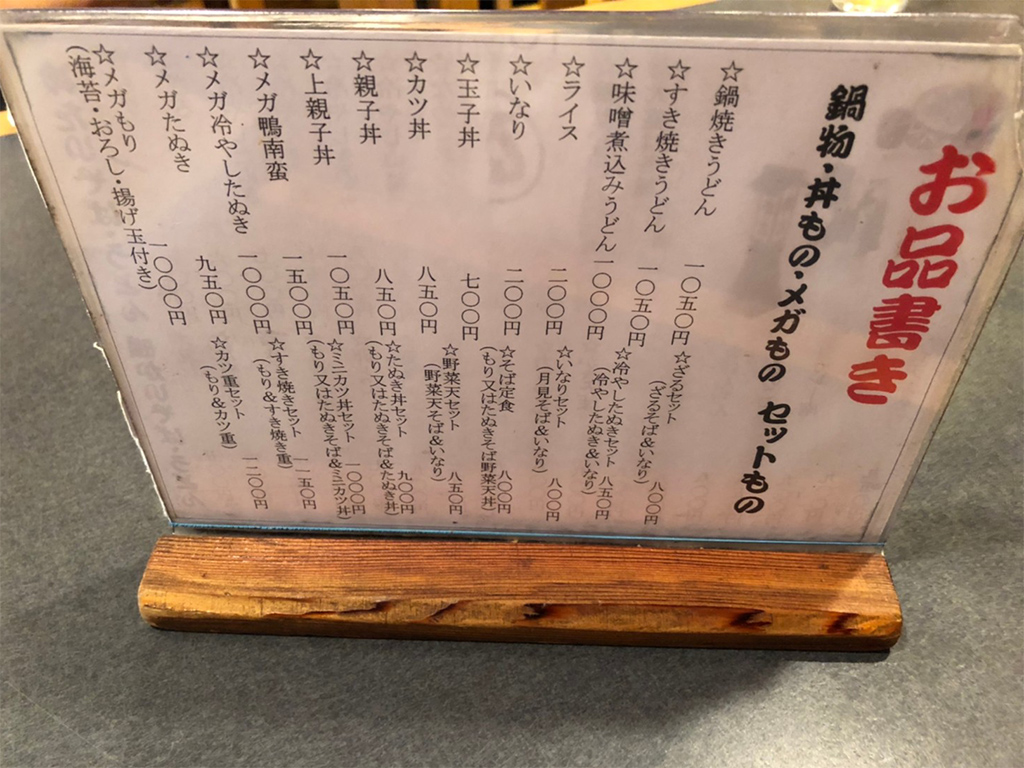 お品書き
鍋物・丼もの・メガもの セットもの
☆鍋焼きうどん 一〇五〇円
☆すき焼きうどん 一〇五〇円
☆味噌煮込みうどん 一〇〇〇円
☆ライス 二〇〇円
☆いなり 二〇〇円
☆玉子丼 七〇〇円
☆カツ丼 八五〇円
☆親子丼 八五〇円
☆上親子丼 一〇五〇円
☆メガ鴨南蛮 一五〇〇円
☆メガ冷やしたぬき 一〇〇〇円
☆メガたぬき 九五〇円
☆メガもり 一〇〇〇円
(海苔・おろし・揚げ玉付き)
☆ざるセット
(ざるそば&いなり) 八〇〇円
☆冷やしたぬきセット
(冷やしたぬき&いなり) 八五〇円
☆いなりセット
(月見そば&いなり) 八〇〇円
☆そば定食 八〇〇円
(もり又はたぬきそば野菜天丼)
☆野菜天セット 八五〇円
(野菜天そば&いなり)
☆たぬき丼セット 九〇〇円
(もり又はたぬきそば&たぬき丼)
☆ミニカツ丼セット 一〇〇〇円
(もり又はたぬきそば&ミニカツ丼)
☆すき焼きセット 一一五〇円
(もり&すき焼き重)
☆カツ重セット 一二〇〇円
(もり&カツ重)